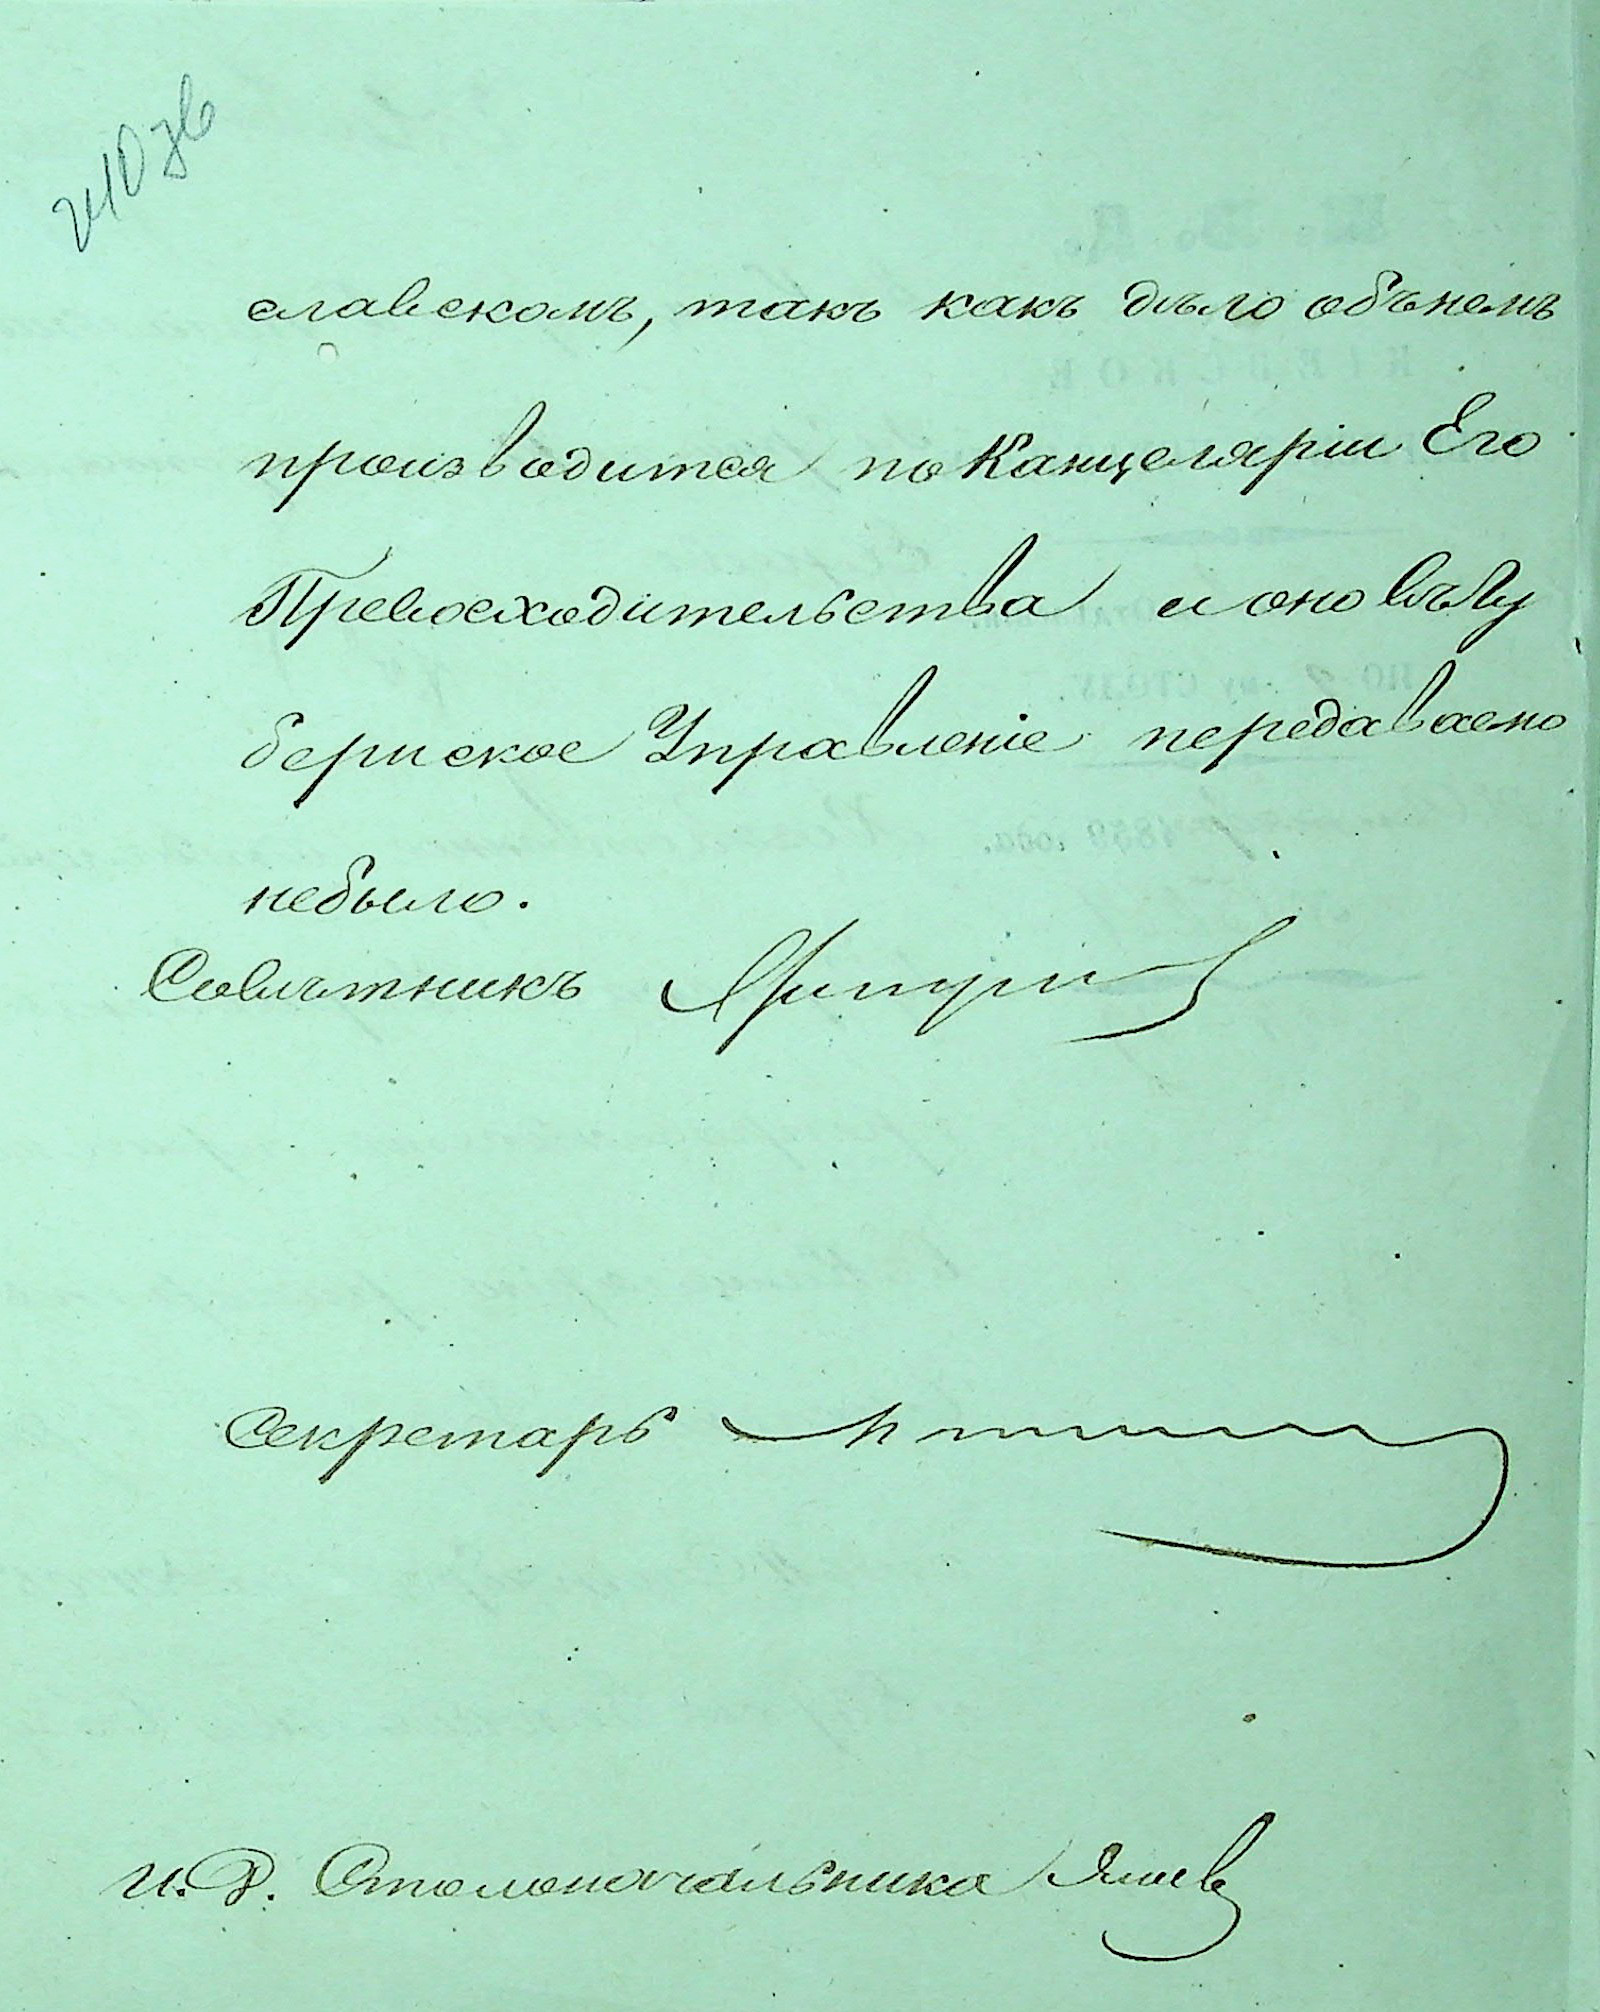 славскомъ, такъ какъ дѣло объ немъ
производится по Канцеляріи Его
Превосходительства и оно въ Гу
бернское Управленіе передаваемо
небыло.
Совѣтникъ
Секретарь
И. Д. Столоначальника